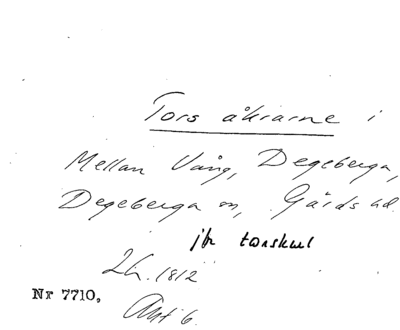 Tors åkrarne i
Mellan Vång, Degeberga,
Degeberga sn, Gärds hd.
jfr torskul
Lh. 1812
Nr 7710,
Akt 6.